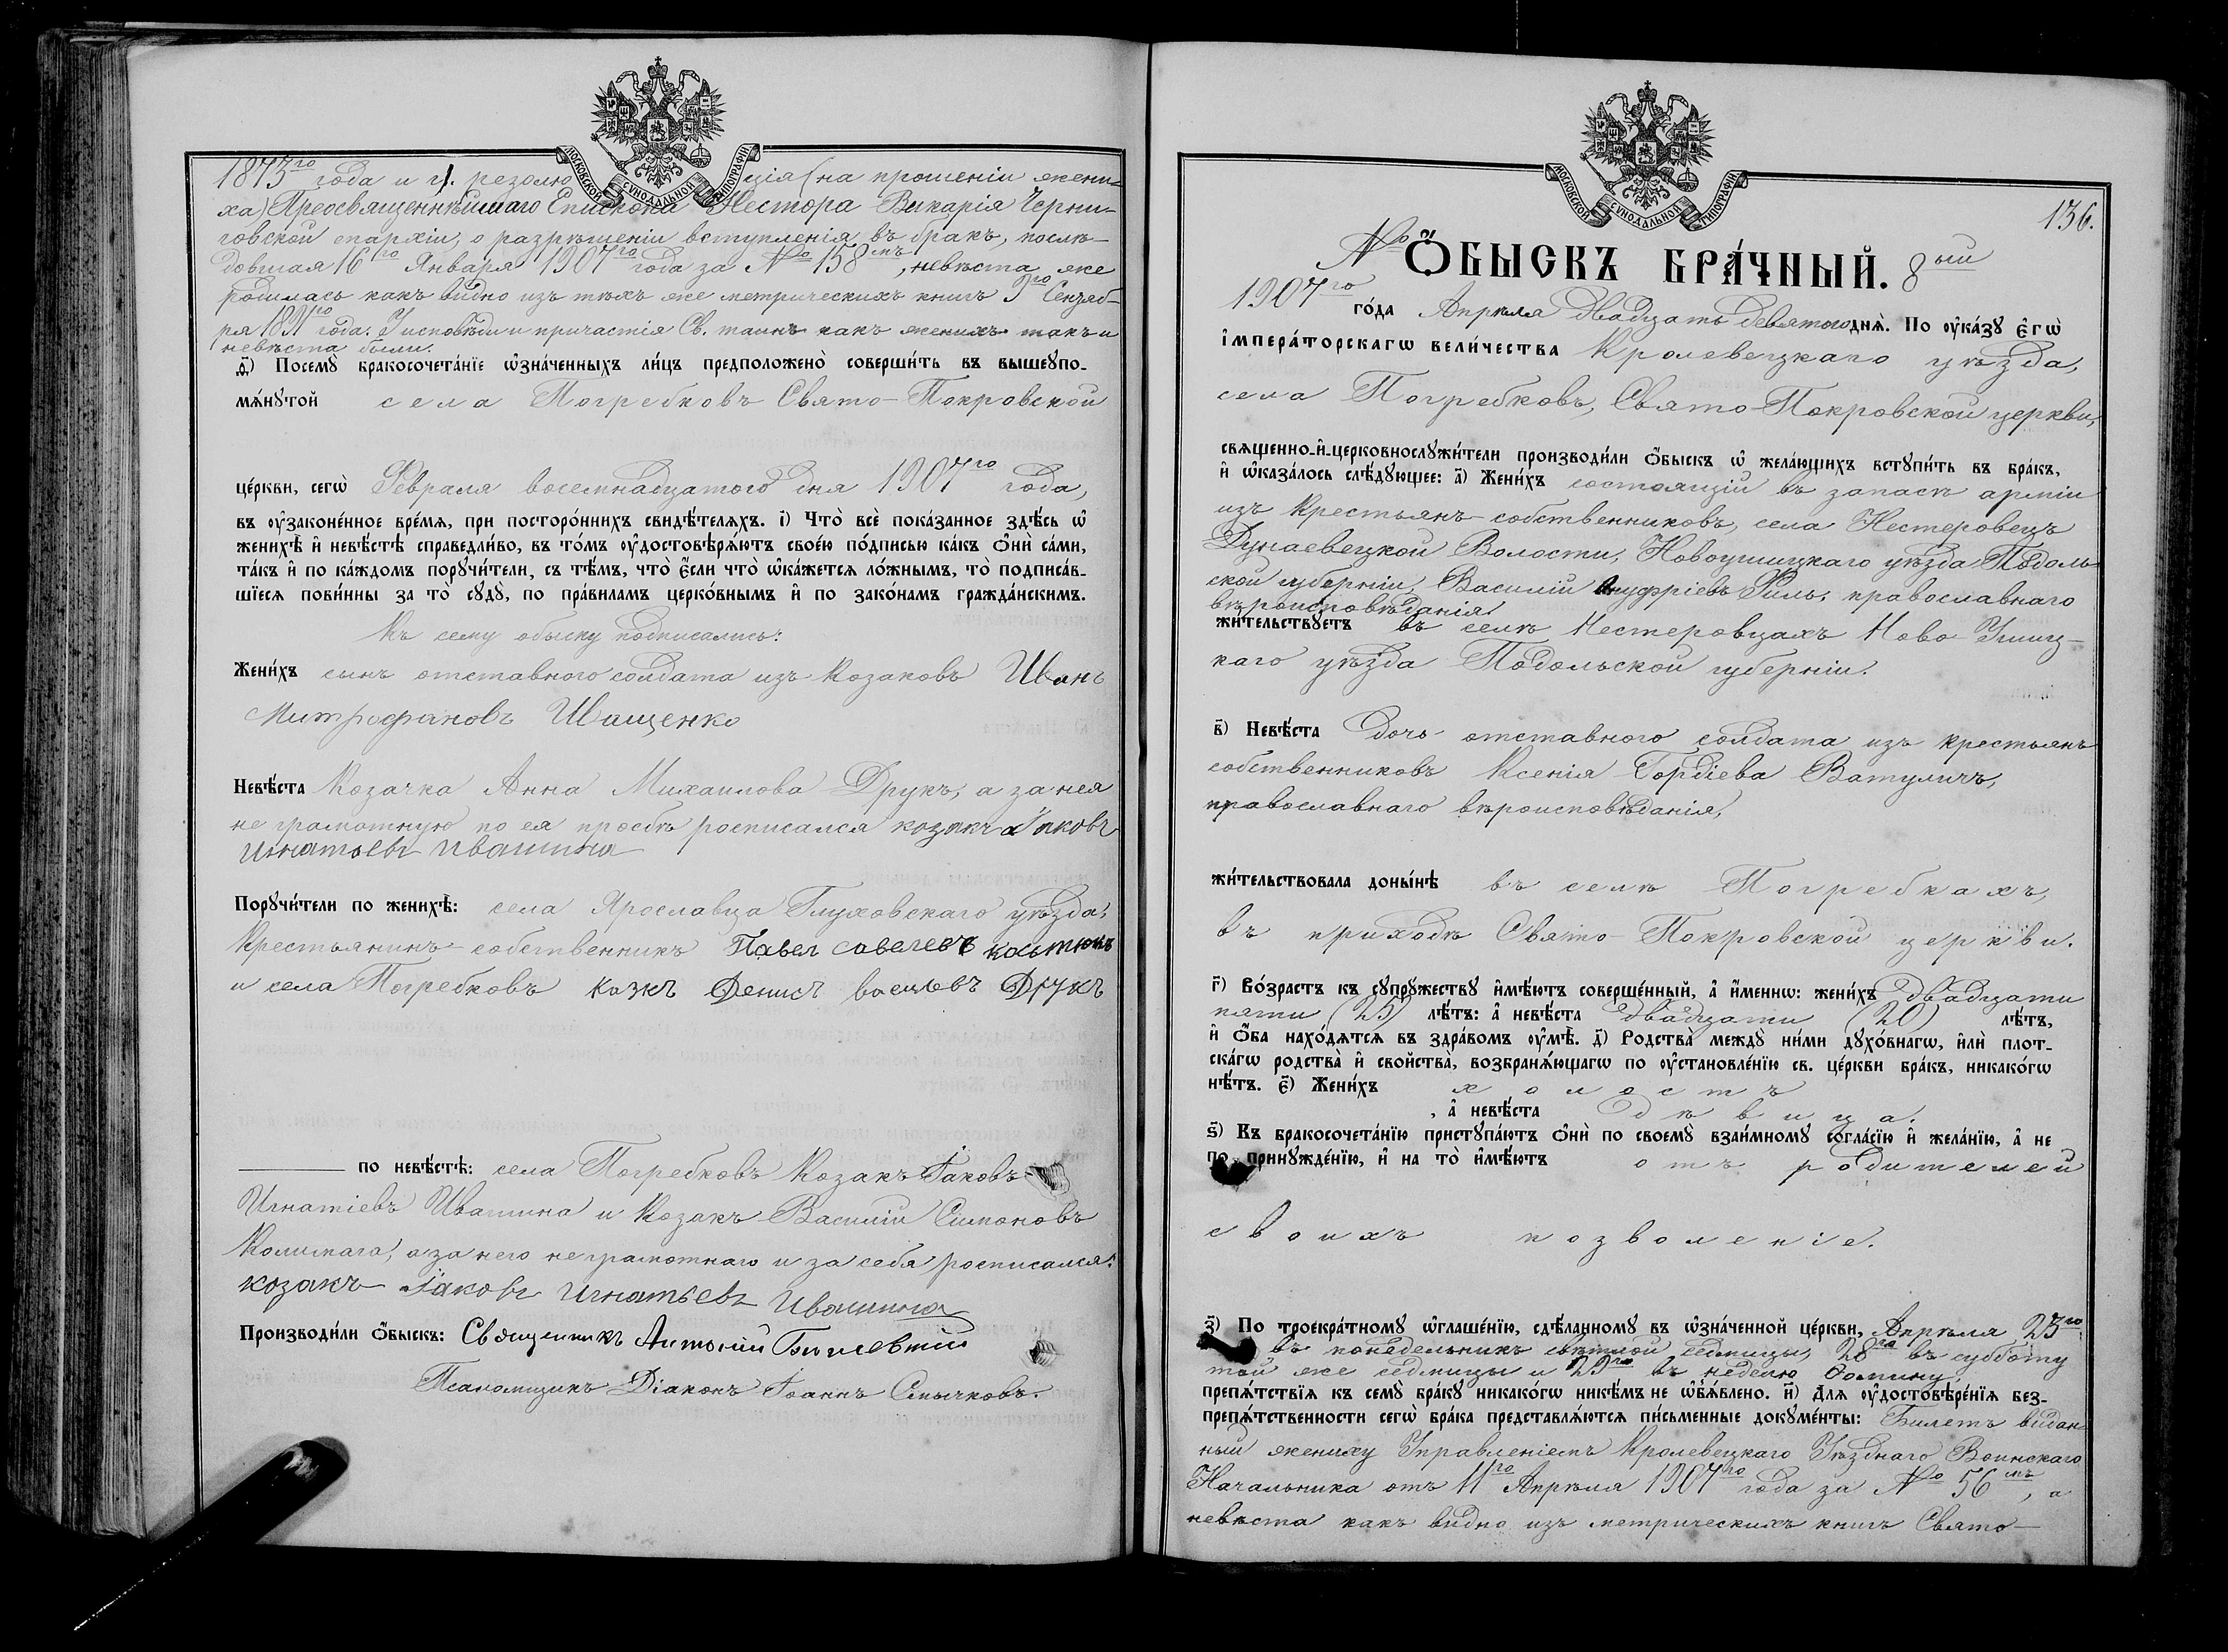 МОСКОВСКОЙ СѴНОДАЛЬНОЙ ТИПОГРАФІИ
1873го года и г). резолюція (на прошеніи жени-
ха) Преосвященнѣйшаго Епископа Нестора Викарія Черни-
говской епархіи, о разрѣшеніи вступленія въ бракъ, послѣ-
довшая 16го Января 1907го года за № 158мъ, невѣста же
родилась какъ видно изъ тѣхъ же метрическихъ книгъ 3го Сентяб-
ря 1891го года. У исповѣди и причастія Св. таинъ какъ женихъ такъ и
невѣста были.
д҃) Посемꙋ̀ бракосочета́нїе ѡ҆зна́ченныхъ ли́цъ предположено̀ соверши́ть въ вышеꙋпо-
мѧ́нꙋтой села Погребковъ Свято-Покровской
це́ркви, сегѡ̀ Февраля восемнадцатого дня 1907го года,
въ ᲂу҆законе́нное вре́мѧ, при посторо́ннихъ свидѣ́телѧхъ. і҃) Что̀ всѐ пока́занное здѣ́сь ѡ҆
женихѣ̀ и҆ невѣ́стѣ справедли́во, въ то́мъ ᲂу҆достовѣрѧ́ютъ свое́ю по́дписью ка́къ ѻ҆нѝ са́ми,
та́къ и҆ по ка́ждомъ порꙋчи́тели, съ тѣ́мъ, что̀ є҆́сли что̀ ѡ҆ка́жетсѧ ло́жнымъ, то̀ подписа́в-
шїесѧ пови́нны за то̀ сꙋдꙋ̀, по пра́виламъ церко́внымъ и҆ по зако́намъ гражда́нскимъ.
Къ сему обыску подписались:
Жени́хъ сынъ отставного солдата изъ козаковъ Иванъ
Митрофановъ Иващенко
Невѣ́ста Козачка Анна Михаилова Друкъ, а за нея
не грамотную по ея просьбѣ росписался козакъ Іаковъ
Игнатьевъ Ивашина
Порꙋчи́тели по женихѣ̀: села Ярославца Глуховскаго уѣзда,
Крестьянинъ-собственникъ Павел савелевъ костюкъ
и села Погребковъ козкъ Денисъ васильевъ Друкъ
по невѣ́стѣ: села Погребковъ Козакъ Іаковъ
Игнатіевъ Ивашина и Козакъ Василій Симоновъ
Колимага, а за него неграмотнаго и за себя росписался:
козакъ Іаковъ Игнатьевъ Ивашина
Производи́ли ѻ҆́быскъ: Священникъ Антоній
Псаломщикъ Діаконъ Іоаннъ Смычковъ.
МОСКОВСКОЙ СѴНОДАЛЬНОЙ ТИПОГРАФІИ
136.
№ Ѻ҆́БЫСКЪ БРА́ЧНЫЙ. 8ый
1907го го́да Апрѣля двадцать девятого днѧ̀. По ᲂу҆ка́зꙋ є҆гѡ̀
і҆мпера́торскагѡ вели́чества Кролевецкаго уѣзда,
села Погребковъ, Свято-Покровской церкви,
свѧщенно-и҆-церковнослꙋжи́тели производи́ли ѻ҆́быскъ ѡ҆ жела́ющихъ встꙋпи́ть въ бра́къ,
и҆ ѡ҆каза́лось слѣ́дꙋющее: а҃) Жени́хъ состоящій въ запасѣ арміи
изъ крестьянъ-собственниковъ, села Нестеровецъ
Дунаевецкой Волости, Новоушицкаго уѣзда Подоль-
ской губерніи, Василій Ануфріевъ Филь, православнаго
вѣроисповѣданія,
жи́тельствꙋетъ въ селѣ Нестеровцахъ Ново-Ушиц-
каго уѣзда Подольской губерніи.
в҃) Невѣ́ста дочь отставного солдата изъ крестьянъ
собственниковъ Ксенія Гордіева Ватуличъ,
православнаго вѣроисповѣданія,
жи́тельствовала доны́нѣ въ селѣ Погребкахъ,
въ приходѣ Свято-Покровской церкви.
г҃) Во́зрастъ къ сꙋпрꙋ́жествꙋ и҆мѣ́ютъ соверше́нный, а҆ и҆́меннѡ: жени́хъ двадцати
пяти (25) лѣ́тъ: а҆ невѣ́ста двадцати (20) лѣ́тъ,
и҆ ѻ҆́ба нахо́дѧтсѧ въ здра́вомъ ᲂу҆мѣ̀. д҃) Родства̀ междꙋ̀ ни́ми дꙋхо́внагѡ, и҆лѝ плот-
ска́гѡ родства̀ и҆ сво́йства̀, возбранѧ́ющагѡ по ᲂу҆становле́нїю св. це́ркви бра́къ, никако́гѡ
нѣ́тъ. є҃) Жени́хъ холостъ
, а҆ невѣ́ста дѣвица.
ѕ҃) Къ бракосочета́нїю пристꙋпа́ютъ ѻ҆нѝ по своемꙋ̀ взаи́мномꙋ согла́сїю и҆ жела́нїю, а҆ не
по принꙋжде́нїю, и҆ на то̀ и҆мѣ́ютъ отъ родителей
своихъ позволеніе.
з҃) По троекра́тномꙋ ѡ҆глаше́нїю, сдѣ́ланномꙋ въ ѡ҆зна́ченной це́ркви, Апрѣля 23го
въ понедельникъ свѣтлой седмицы, 28го въ субботу
той же седмицы и 29го въ неделю Ѳомину,
препѧ́тствїѧ къ семꙋ̀ бра́кꙋ никако́гѡ никѣ́мъ не ѡ҆б̾ѧ́влено. и҃) Длѧ ᲂу҆достовѣре́нїѧ без-
препѧ́тственности сегѡ̀ бра́ка представлѧ́ютсѧ пи́сьменные докꙋме́нты: Билетъ видан-
ный жениху Управленіемъ Кролевецкаго Уѣзднаго Воинскаго
Начальника отъ 11го Апрѣля 1907го года за № 56мъ, а
невѣста какъ видно изъ метрическихъ книгъ Свято-